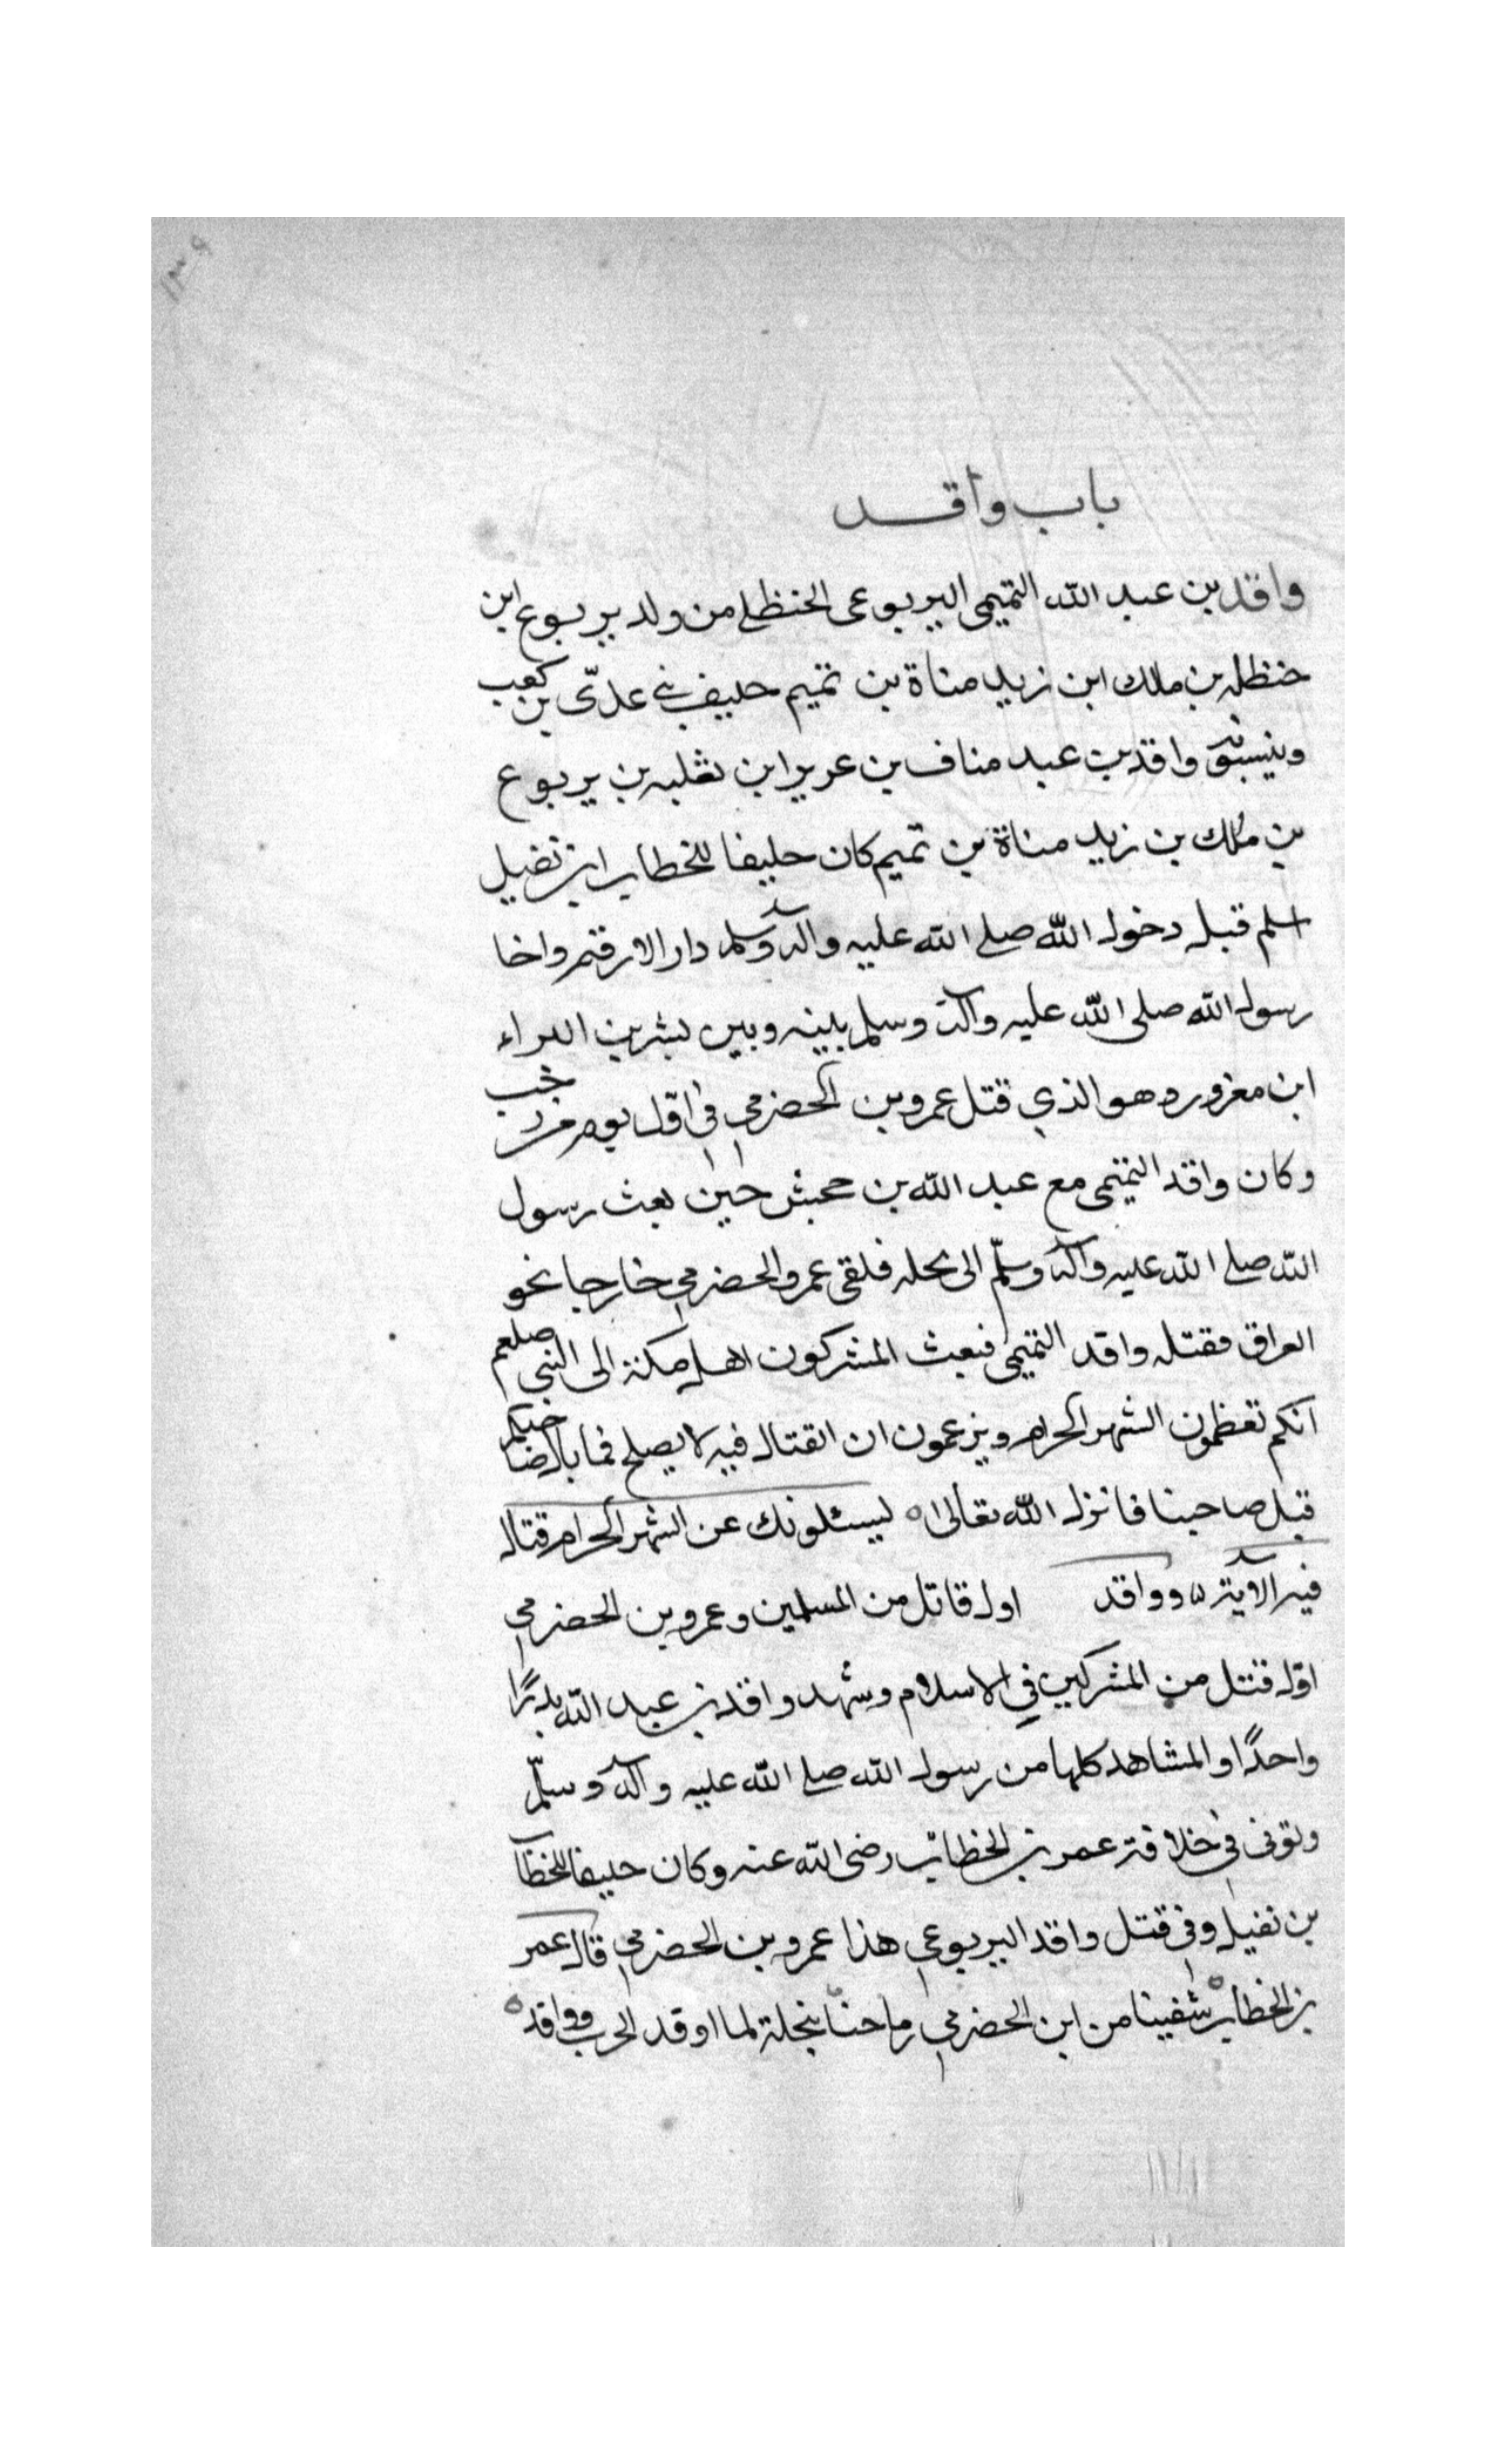 ١٣٩
باب واقد
واقد بن عبد الله التميمي اليربوعى الحنظلي من ولد يربوع ابن
حنظله بن ملك ابن زيد مناة بن تميم حليف بني عدّى بن كعب
واقد بن عبد مناف بن عرير ابن ثعلبه بن يربوع
بن ملك بن زيد مناة بن تميم كان حليفا للخطاب ابن نفيل
اسلم قبل دخول الله صلى الله عليه وآله وسلم دار الارقم واخا
رسول الله صلى الله عليه وآله وسلم بينه وبين بشر بن البراء
ابن معرور وهو الذي قتل عمرو بن الحضرمي في اوّل يوم من رجب
وكان واقد التميمى مع عبد الله بن جحش حين بعث رسول
الله صلى الله عليه وآله وسلّم الى نخله فلقى عمرو الحضرمي خارجا نحو
العراق فقتله واقد التميمي فبعث المشركون اهل مكة الى النبي صلعم
انكم تعظمون الشهر الحرام ويزعمون ان القتال فيه لا يصلح فما بال صاحبكم
قتل صاحبنا فانزل الله تعالى ليسئلونك عن الشهر الحرام قتال
فيه الآية ه وواقد اول قاتل من المسلمين وعمرو بن الحضرمي
اوّل قتل من المشركين في الاسلام وشهد واقد بن عبد الله بدرًا
واحدًا والمشاهد كلها من رسول الله صلى الله عليه وآله وسلّم
وتوفى في خلافة عمر بن الخطاب رضى الله عنه وكان حليفا للخطاب
بن نفيل وفي قتل واقد اليربوعي هذا عمرو بن الحضرمي قال عمر
بن الخطاب ه شفينا من ابن الحضرمي رماحنا بنخلة لما اوقد الحرب واقد ه